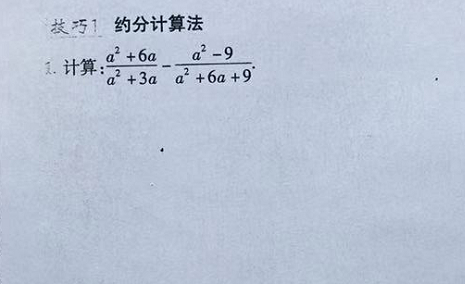 技巧1 约分计算法
1. 计算:\frac{a^2+6a}{a^2+3a}-\frac{a^2-9}{a^2+6a+9}.